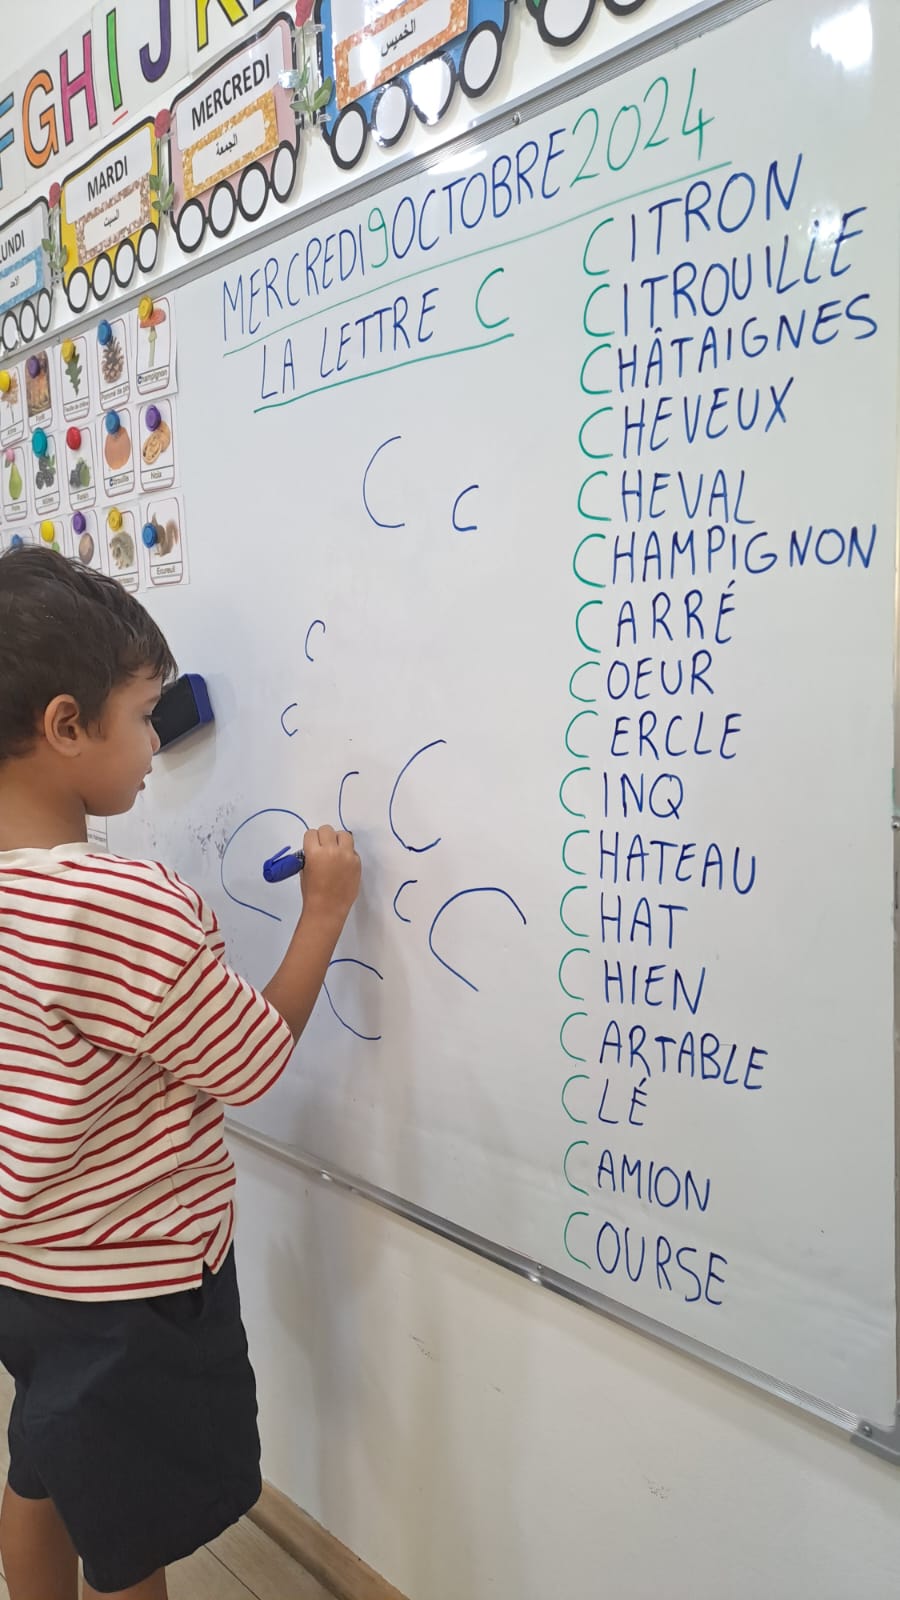 F G H I J K
LUNDI
الاحد
MARDI
السبت
MERCREDI
الجمعة
الخميس
MERCREDI 9 OCTOBRE 2024
LA LETTRE C
C c
C
c
C C
C
c C
C
CITRON
CITROUILLE
CHÂTAIGNES
CHEVEUX
CHEVAL
CHAMPIGNON
CARRÉ
COEUR
CERCLE
CINQ
CHATEAU
CHAT
CHIEN
CARTABLE
CLÉ
CAMION
COURSE
Pomme de pin
Champignon
Raisin
Citrouille
Noix
Ecureuil